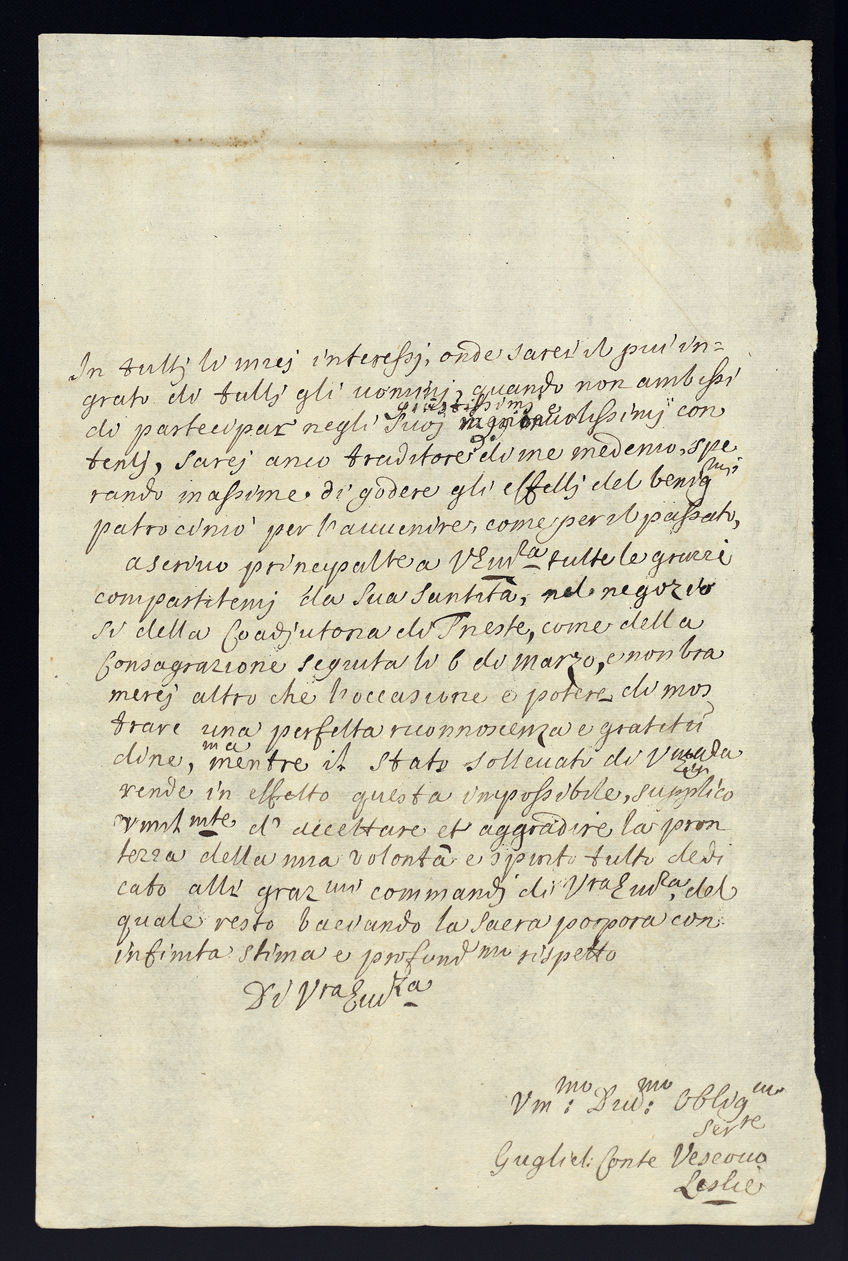 In tuttj li miej interessj, onde sarei il piu in=
grato di tuttj gli uominj, quando non ambissi
giustissimj e
di partecipar negli Suoj volissimj con
tentj, sarej anco traditore di me medemo, spe
rando massime di godere gli effettj del benigmi
patrocinio per l'auuenire, come per il passato,
ascriuo principalte a VEmza tutte le grazzi
compartitemj da Sua Santità, nel negozio
si della Coadjutoria di Trieste, come della
Consagrazione seguita li 6 di Marzo, e non bra
merej altro che l'occasione e potere di mos
trare una perfetta riconnoscenza e gratitu
dine, ma mentre il stato solleuato di Vra Emza
rende in effetto questa impossibile, supplico
vmilmte d' accettare et aggradire la pron
tezza della mia volontà e spirito tutto dedi
cato alli grazmi commandj di Vra Emza, del
quale resto baciando la sacra porpora con
infinita stima e profundmo rispetto
Di Vra Emza
Vmmo: Diumo: Obligmo
Serre
Gugliel: Conte Vescouo
Leslie